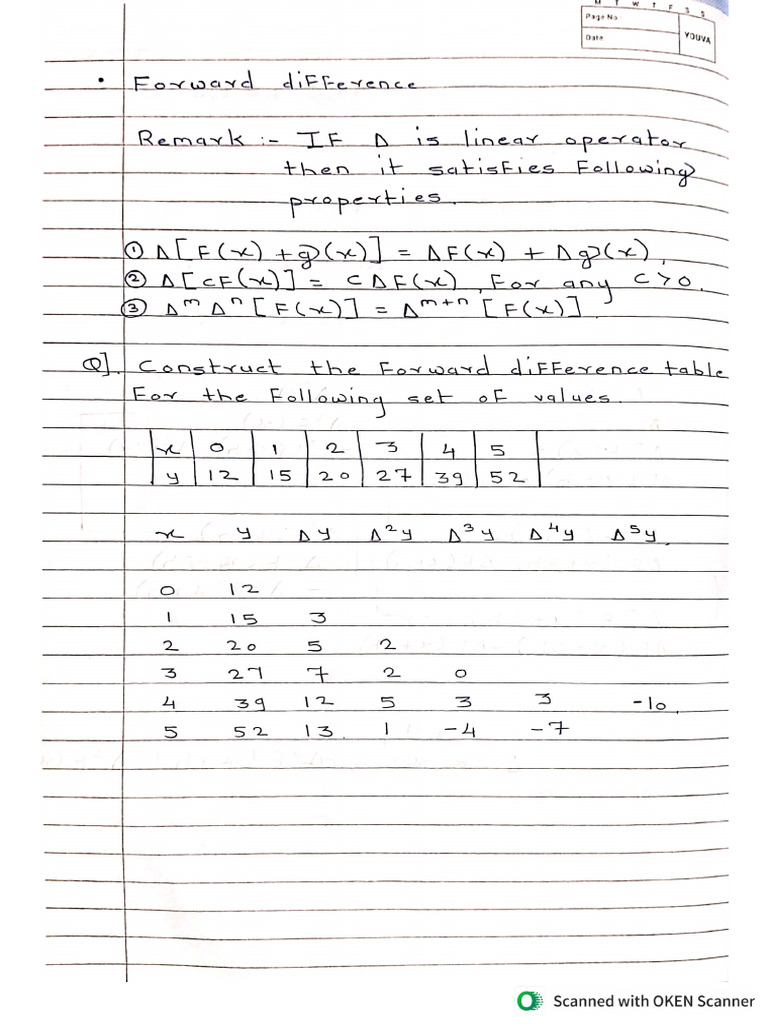 M T W T F S S
Page No
Date
YOUVA
• Forward difference
Remark :- If Δ is linear operator
then it satisfies following
properties.
① Δ[F(x) + g(x)] = ΔF(x) + Δg(x),
② Δ[cF(x)] = cΔF(x), For any c>0.
③ Δ^m Δ^n [F(x)] = Δ^m+n [F(x)].
Q]. Construct the forward difference table
For the following set of values.
x 0 1 2 3 4 5
y 12 15 20 27 39 52
x y Δy Δ²y Δ³y Δ⁴y Δ⁵y.
0 12
1 15 3
2 20 5 2
3 27 7 2 0
4 39 12 5 3 3 -10.
5 52 13. 1 -4 -7
Scanned with OKEN Scanner